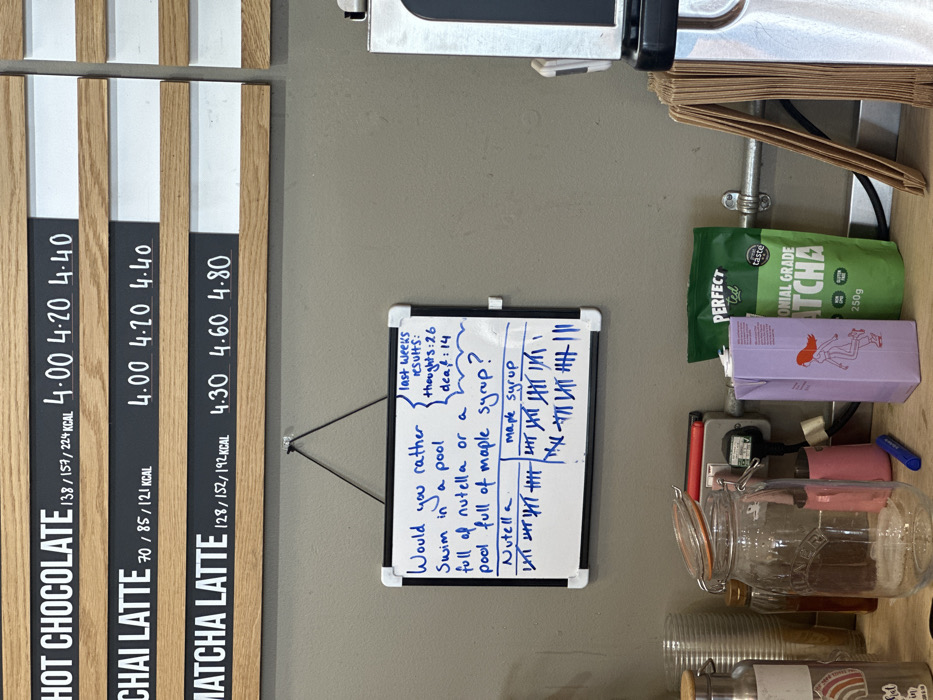 HOT CHOCOLATE 138/157/224 KCAL 4.00 4.20 4.40
CHAI LATTE 70/85/121 KCAL 4.00 4.20 4.40
MATCHA LATTE 128/152/192 KCAL 4.30 4.60 4.80
Would you rather
Swim in a pool
full of nutella or a
pool full of maple syrup?
last weeks
results:
thoughts: 26
deaf: 14
Nutella maple syrup
PERFECT
Ted
MATCHA
250g